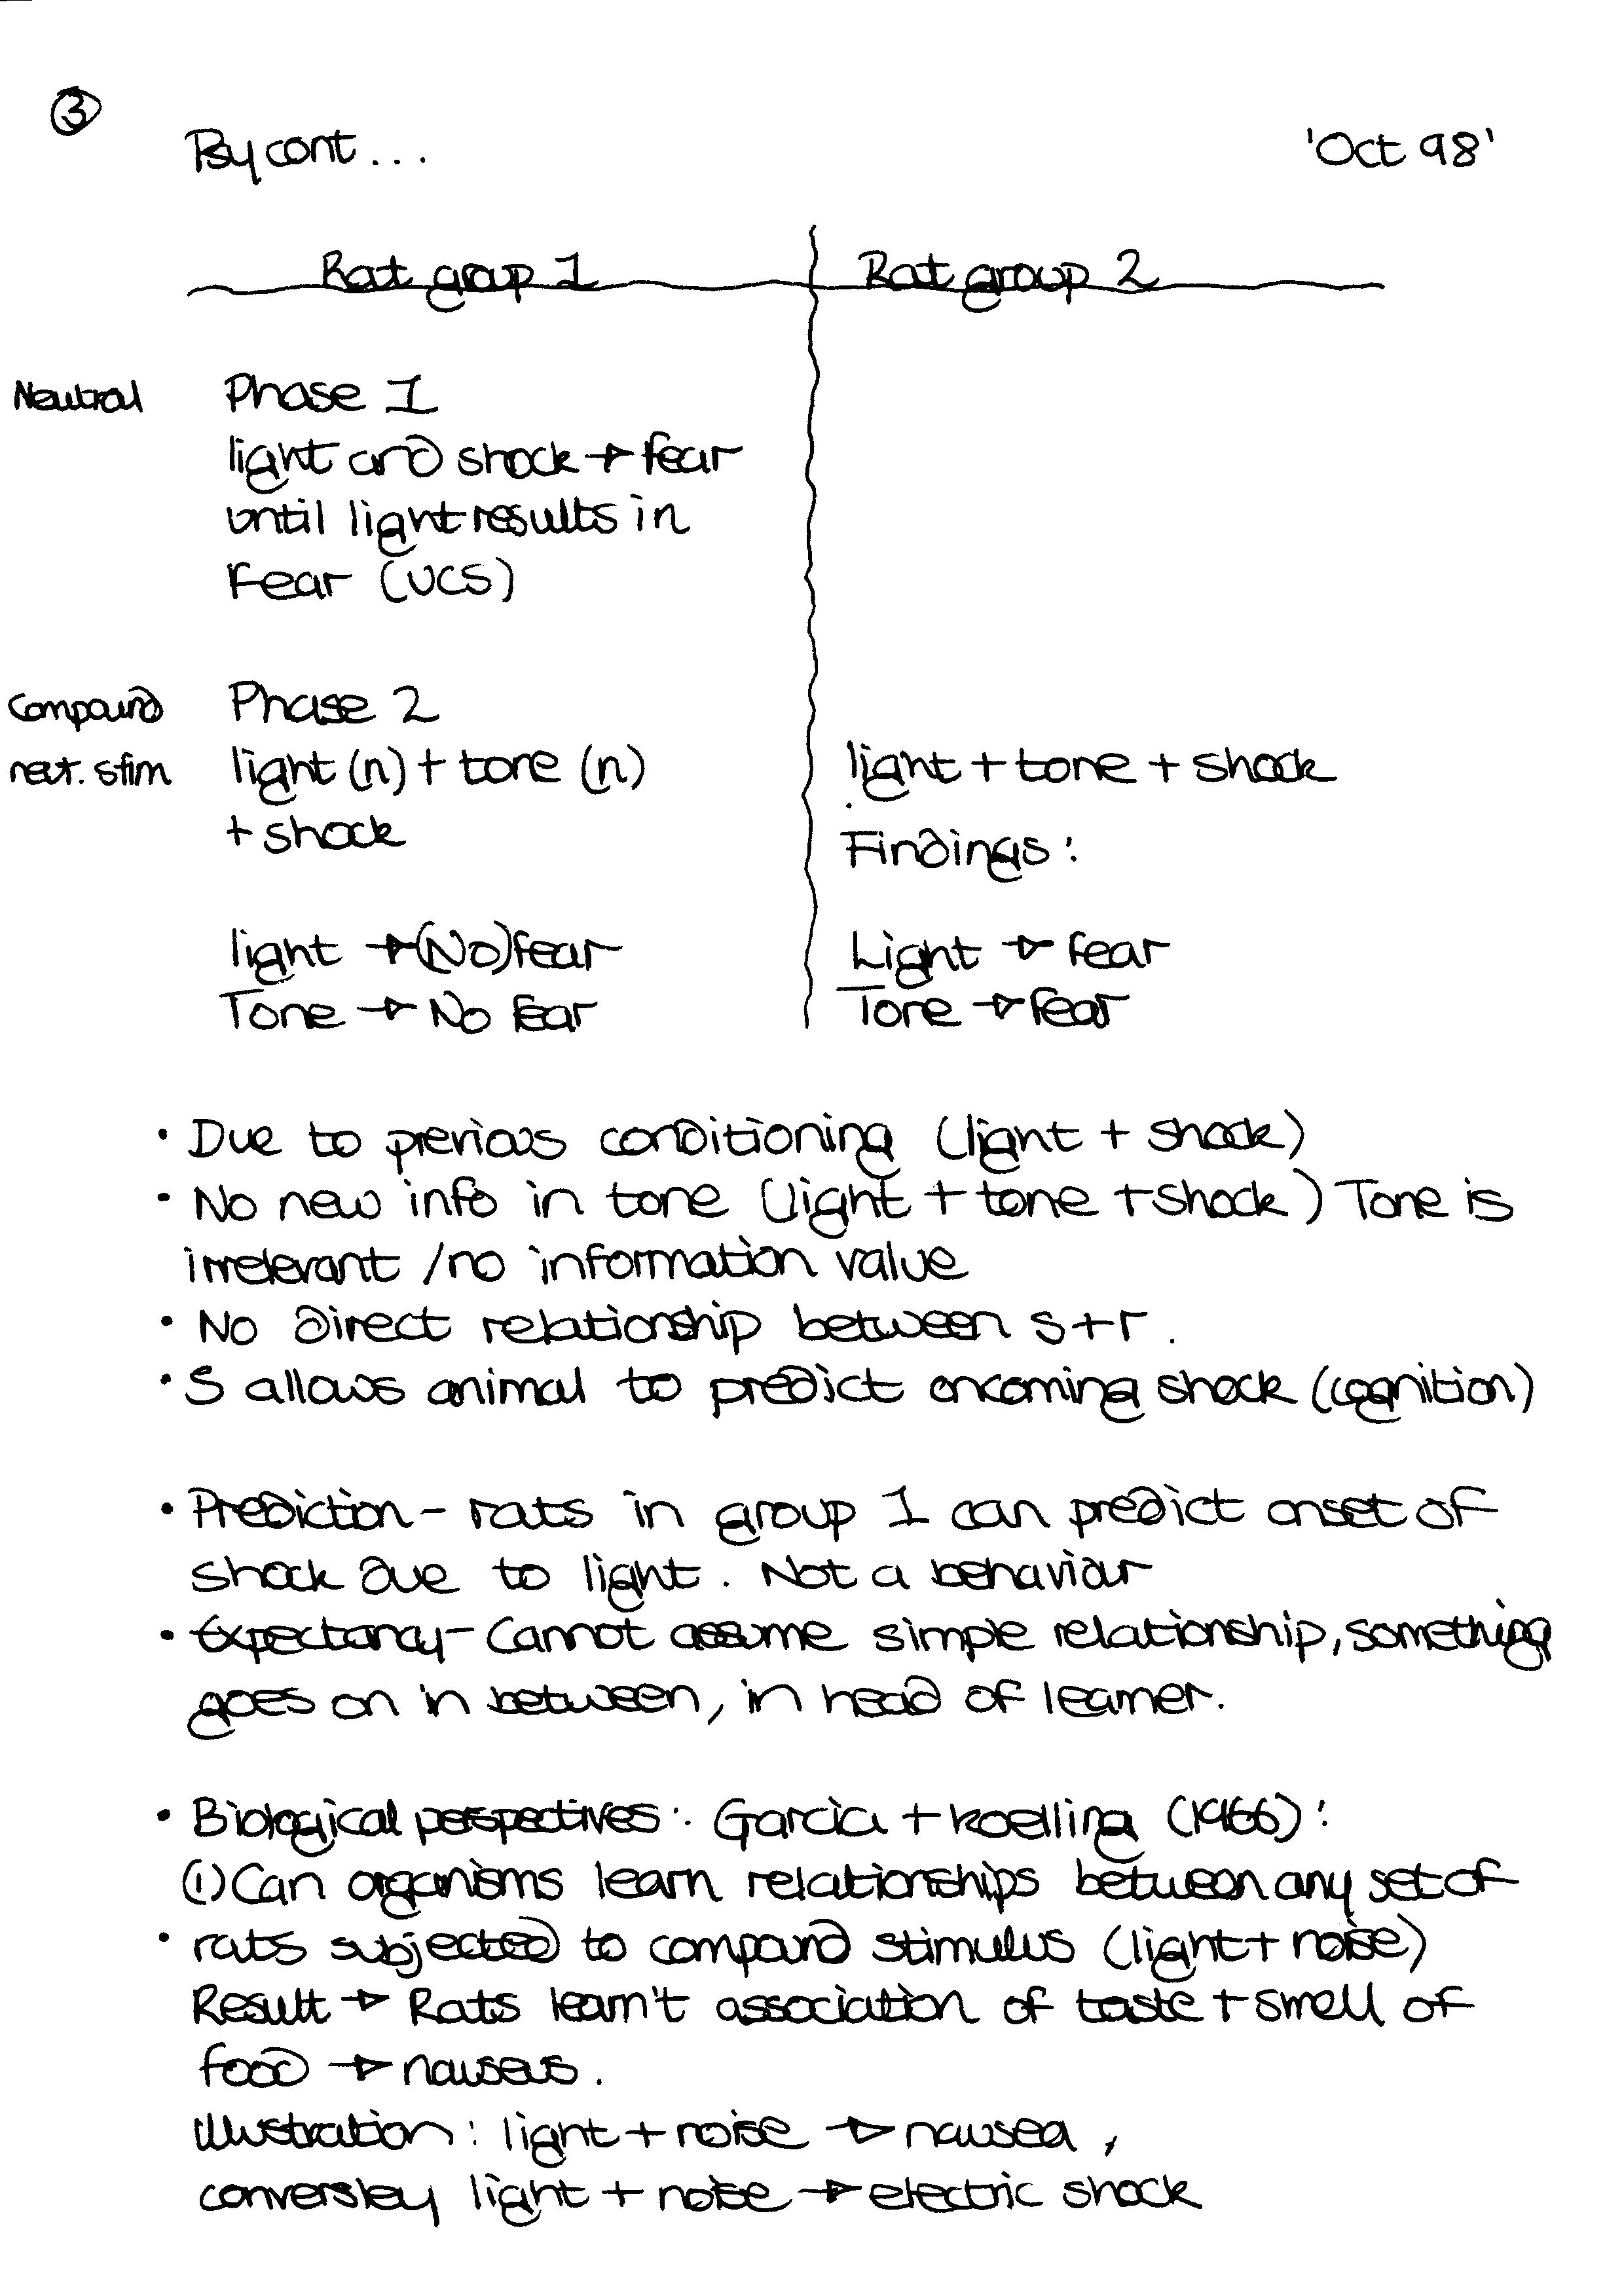 ③
Psy cont... 'Oct 98'
Rat group 1 Rat group 2
Neutral Phase 1
light and shock → fear
until light results in
Fear (UCS)
Compound Phase 2
neut. stim light (n) + tone (n) light + tone + shock
+ shock
Findings:
light → (No) fear Light → fear
Tone → No fear Tone → fear
• Due to previous conditioning (light + shock)
• No new info in tone (light + tone + shock) Tone is
irrelevant / no information value
• No direct relationship between s + r.
• S allows animal to predict oncoming shock (cognition)
• Prediction - rats in group 1 can predict onset of
shock due to light. Not a behaviour
• Expectancy - Cannot assume simple relationship, something
goes on in between, in head of learner.
• Biological perspectives: Garcia + Koelling (1966):
(1) Can organisms learn relationships between any set of
• rats subjected to compound stimulus (light + noise)
Result → Rats learn't association of taste + smell of
food → nauseus.
Illustration: light + noise → nausea,
conversley light + noise → electric shock